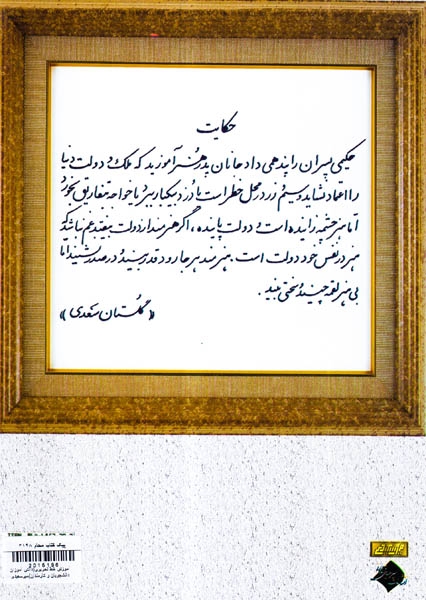 حکایت
حکیمی پسران را پند همی داد جانان پدر هنر آموزید که ملک و دولت دنیا
را اعتماد نشاید و سیم و زر در محل خطر است یا دزد بیکبار ببرد یا خواجه بتفاریق بخورد
اما هنر چشمه زاینده است و دولت پاینده ، اگر هنرمند از دولت بیفتد غم نباشد که
هنر در نفس خود دولت است . هنرمند هر جا رود قدر بیند و در صدر نشیند اما
بی هنر لقمه چیند و سختی بیند .
« گلستان سعدی »
پیک کتاب معلم ۳۱۴۸
2016196